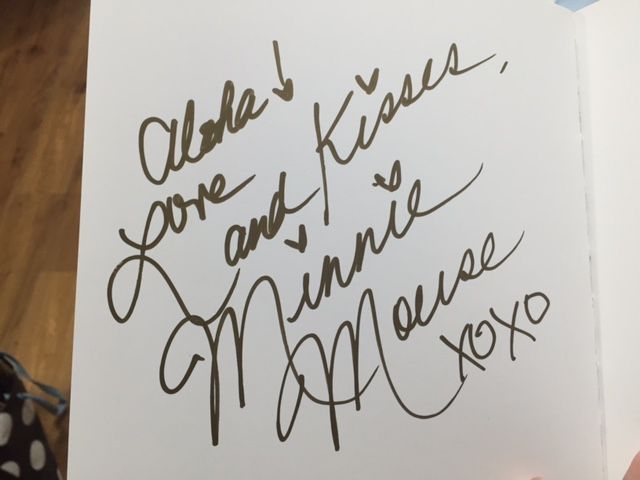 Aloha!
Love and Kisses,
Minnie
Mouse
XOXO